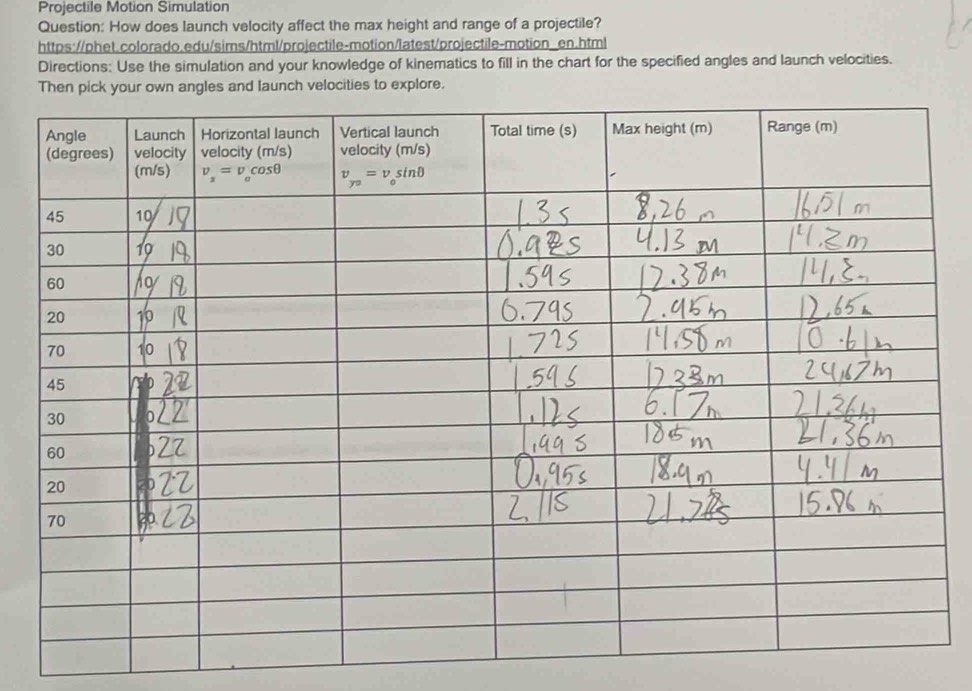 Projectile Motion Simulation
Question: How does launch velocity affect the max height and range of a projectile?
https://phet.colorado.edu/sims/html/projectile-motion/latest/projectile-motion_en.html
Directions: Use the simulation and your knowledge of kinematics to fill in the chart for the specified angles and launch velocities.
Then pick your own angles and launch velocities to explore.
Angle (degrees) Launch velocity (m/s) Horizontal launch velocity (m/s) vₓ = vₒcosθ Vertical launch velocity (m/s) v_yo = vₒsinθ Total time (s) Max height (m) Range (m)
45 10 18 1.3s 8.26 m 16.51 m
30 10 18 0.92s 4.13 m 14.2m
60 10 18 1.59s 12.38m 14.3
20 10 18 0.79s 2.95m 12.65m
70 10 18 1.72s 14.58m 10.61m
45 22 1.59s 12.33m 24.67m
30 22 1.12s 6.17m 21.36m
60 22 1.99s 18.5 m 21.36m
20 22 0.95s 18.9m 4.41 m
70 22 2.11s 15.86 m